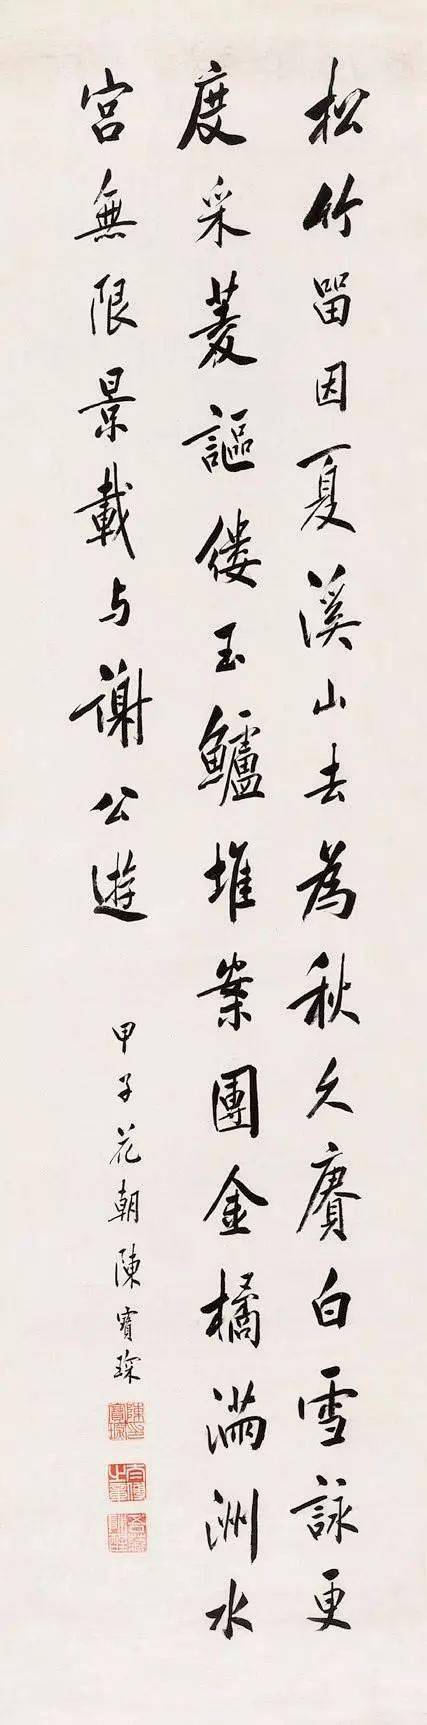 松竹留因夏溪山去為秋久賡白雪詠更
度采菱謳縷玉鱸堆案團金橘滿洲水
宮無限景載与謝公遊
甲子花朝陳寶琛
陳寶琛印